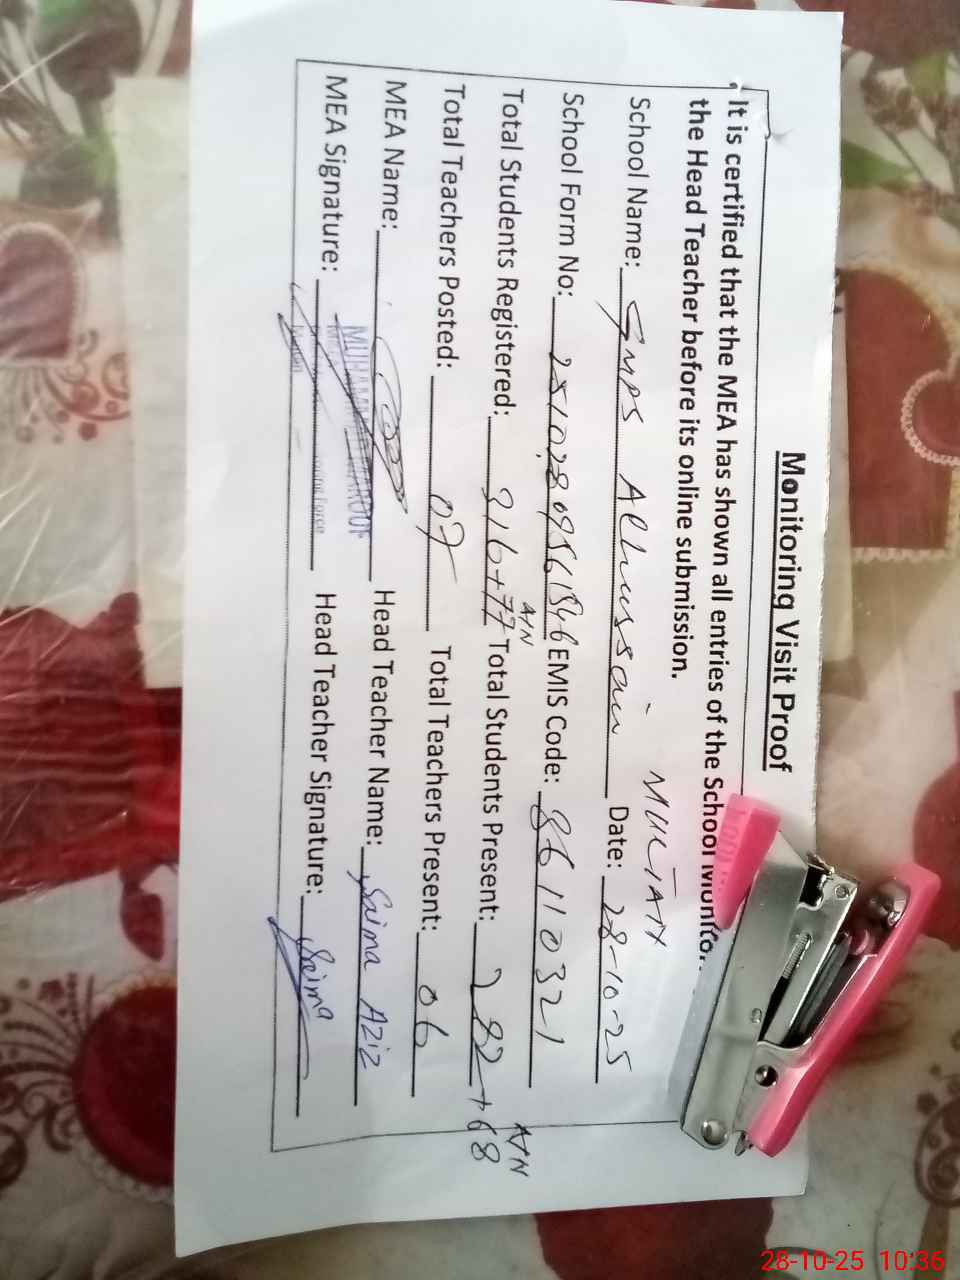 Monitoring Visit Proof
It is certified that the MEA has shown all entries of the School
the Head Teacher before its online submission.
School Name: GMPS Alhussain MULTAN Date: 28-10-25
School Form No: EMIS Code: 36110321
A/N A/N
Total Students Registered: 316+77 Total Students Present: 282+68
Total Teachers Posted: 07 Total Teachers Present: 06
MEA Name: MUHAMMAD Head Teacher Name: Saima Aziz
MEA Signature: Head Teacher Signature: Saima
28-10-25 10:36